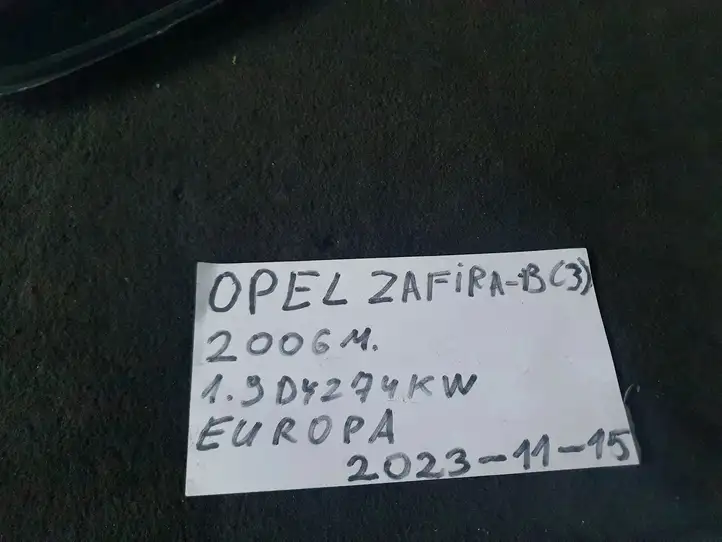 OPEL ZAFiRA-B(3)
2006 M.
1.9 DYZ 74 KW
EUROPA
2023-11-15